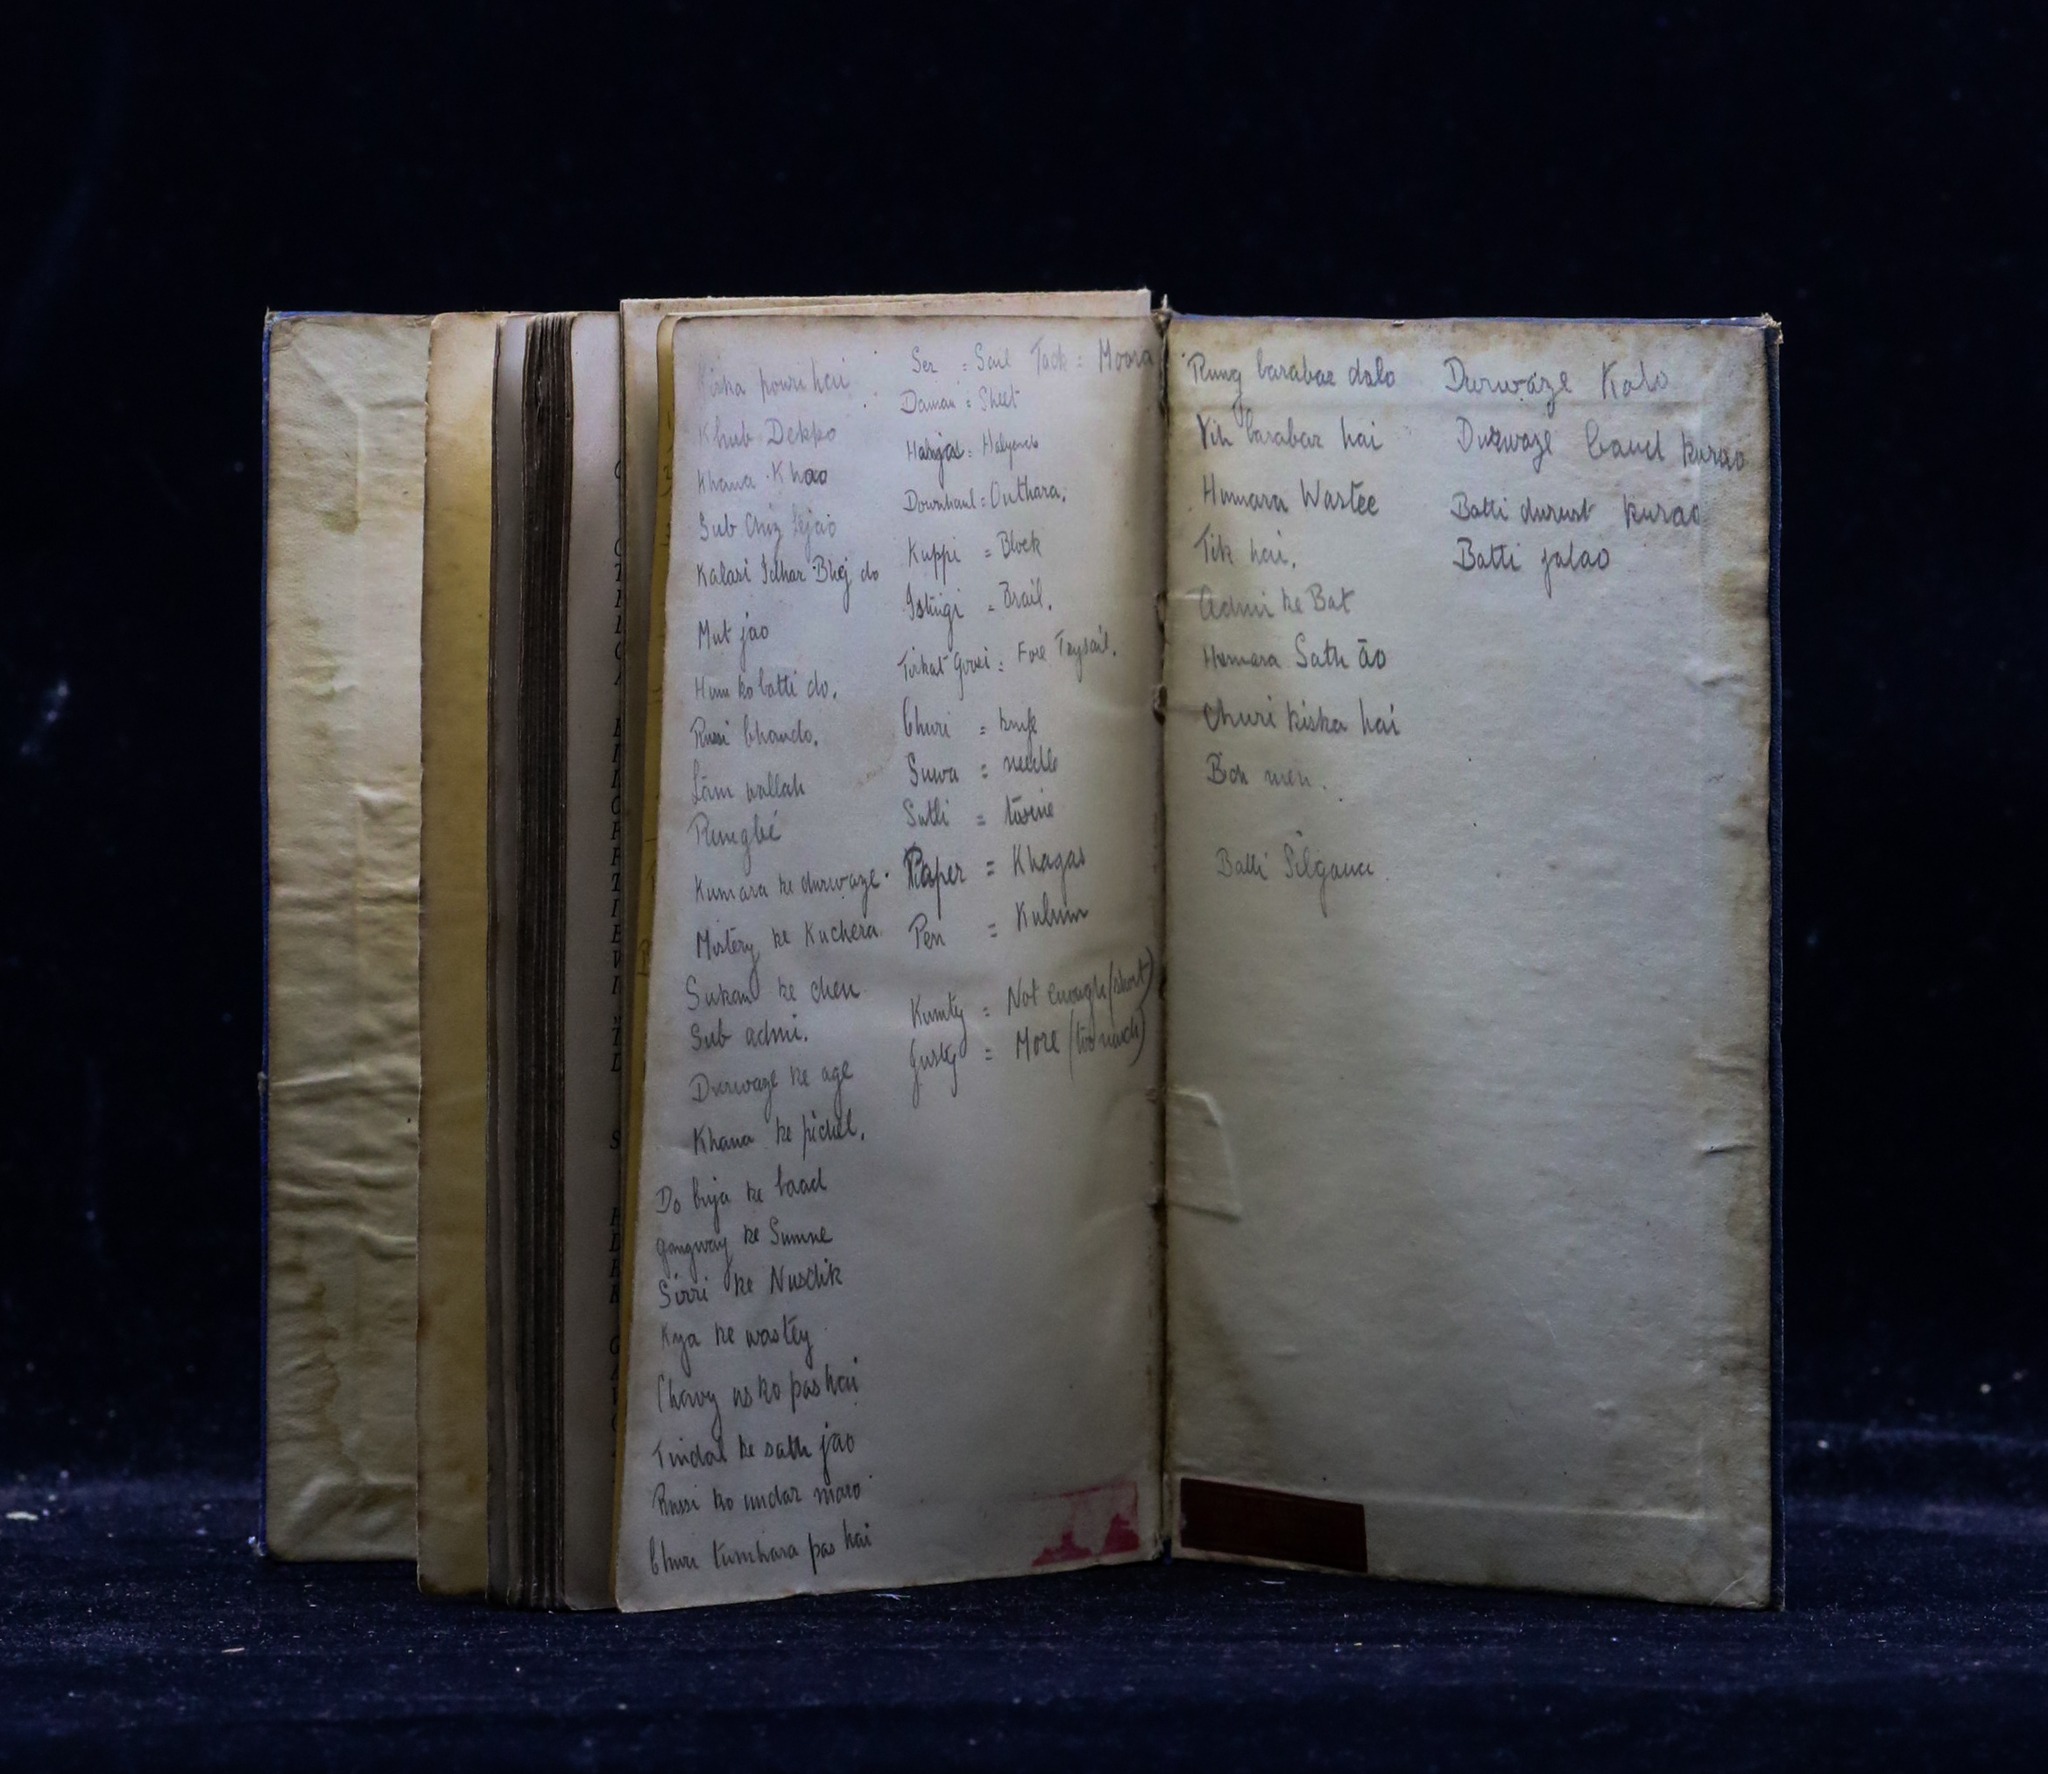 Kiska powri hai
Khub Dekho
Khana Khao
Sub Chiz lejao
Kalasi Idhar Bhej do
Mut jao
Hum ko batti do.
Russi bhando.
Lām wallah
Rungbé
Kumara ke durwaze
Mistery ke Kuchera
Sukan ke chen
Sub admi.
Durwaze ke age
Khana ke pichel.
Do buja ke baad
Gangway ke Sumne
Sirri ke Nusdik
Kya ke wastey
Chavy us ko pas hai
Tindal ke sath jao
Russi ko undar maro
Churi tumhara pas hai
Ser = Sail Tack = Moora
Daman = Sheet
Hanjas = Halyards
Downhaul = Outhara.
Kuppi = Block
Istingi = Brail.
Tirkat Goosi = Fore Trysail.
Churi = knife
Suwa = needle
Sutli = twine
Paper = Khagas
Pen = Kulum
Kumty = Not enough (short)
Justy = More (too much)
Rung barabar dalo
Yih barabar hai
Humara Wastee
Tik hai.
Admi ke Bat
Humara Sath āo
Churi kiska hai
Batti Silgawa
Durwaze Kolo
Durwaze baud kurao
Batti durust kurao
Batti jalao